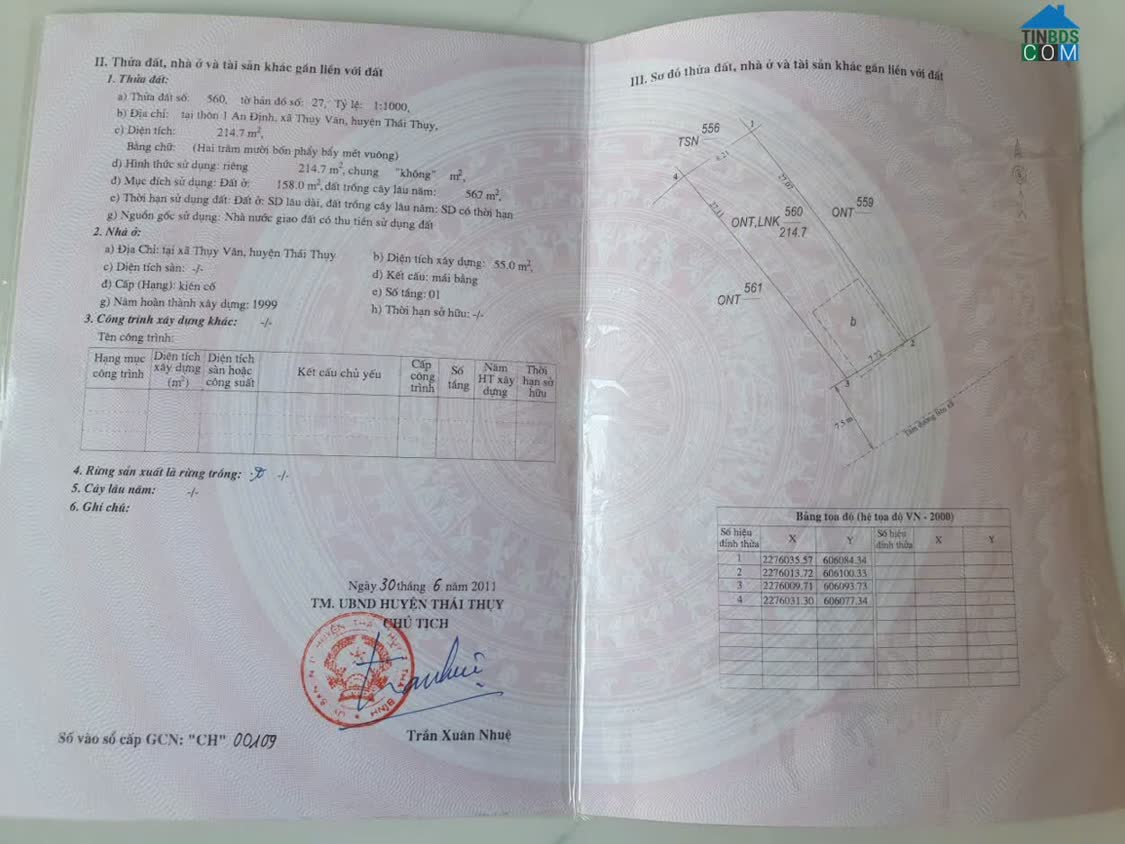 TINBDS
COM
II. Thửa đất, nhà ở và tài sản khác gắn liền với đất
1. Thửa đất:
a) Thửa đất số: 560, tờ bản đồ số: 27, Tỷ lệ: 1:1000,
b) Địa chỉ: tại thôn 1 An Định, xã Thụy Văn, huyện Thái Thụy,
c) Diện tích: 214.7 m²,
Bằng chữ: (Hai trăm mười bốn phẩy bẩy mét vuông)
d) Hình thức sử dụng: riêng 214.7 m², chung "không" m²,
đ) Mục đích sử dụng: Đất ở: 158.0 m², đất trồng cây lâu năm: 567 m²,
e) Thời hạn sử dụng đất: Đất ở: SD lâu dài, đất trồng cây lâu năm: SD có thời hạn
g) Nguồn gốc sử dụng: Nhà nước giao đất có thu tiền sử dụng đất
2. Nhà ở:
a) Địa Chỉ: tại xã Thụy Văn, huyện Thái Thụy
b) Diện tích xây dựng: 55.0 m²,
c) Diện tích sàn: -/-
d) Kết cấu: mái bằng
đ) Cấp (Hạng): kiên cố
e) Số tầng: 01
g) Năm hoàn thành xây dựng: 1999
h) Thời hạn sở hữu: -/-
3. Công trình xây dựng khác: -/-
Tên công trình:
Hạng mục công trình
Diện tích xây dựng (m²)
Diện tích sàn hoặc công suất
Kết cấu chủ yếu
Cấp công trình
Số tầng
Năm HT xây dựng
Thời hạn sở hữu
4. Rừng sản xuất là rừng trồng: -/-
5. Cây lâu năm: -/-
6. Ghi chú:
Ngày 30 tháng 6 năm 2011
TM. UBND HUYỆN THÁI THỤY
CHỦ TỊCH
Trần Xuân Nhuệ
Số vào sổ cấp GCN: "CH" 00109
III. Sơ đồ thửa đất, nhà ở và tài sản khác gắn liền với đất
TSN 556
1
8.21
4
27.07
27.11
ONT,LNK 560
214.7
ONT 559
ONT 561
b
7.72
2
3
7.5 m
Tâm đường liên xã
Bảng tọa độ (hệ tọa độ VN - 2000)
Số hiệu đỉnh thửa X Y Số hiệu đỉnh thửa X Y
1 2276035.57 606084.34
2 2276013.72 606100.33
3 2276009.71 606093.73
4 2276031.30 606077.34